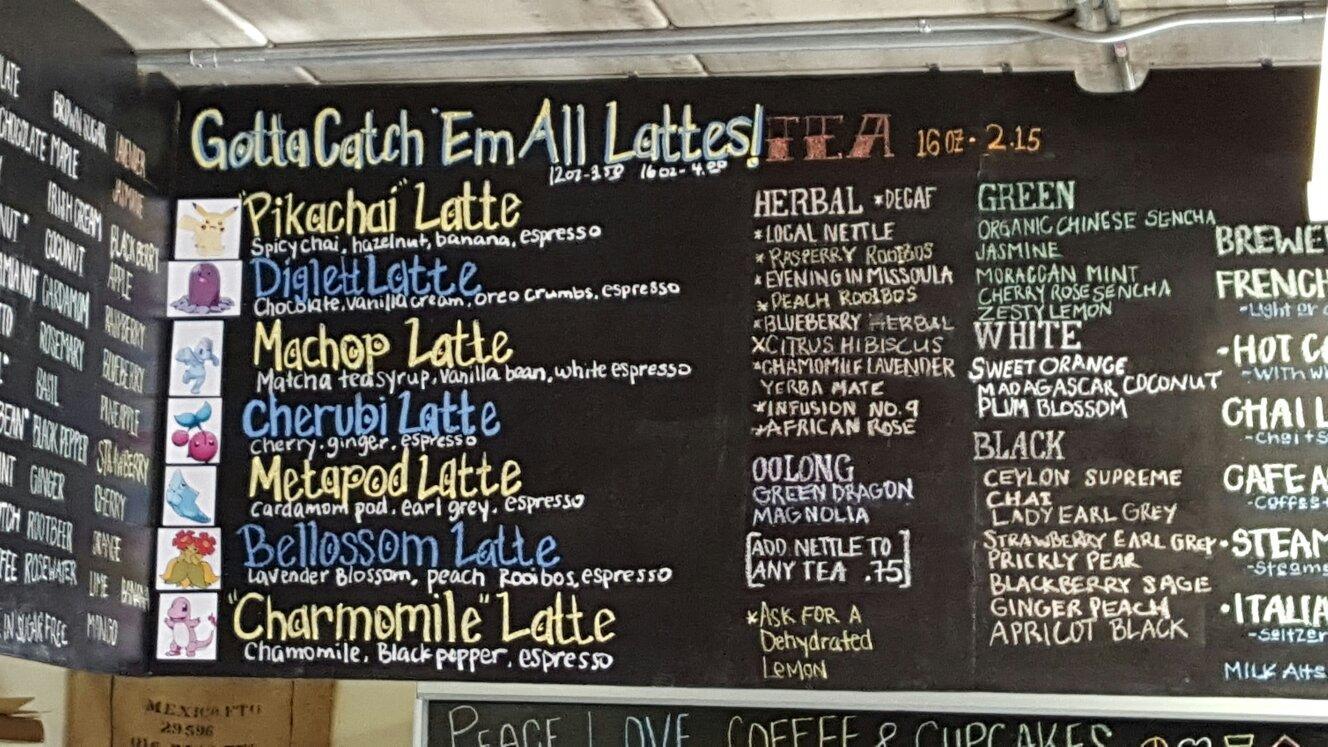 LATE
CHOCOLATE
NUT*
BROWN SUGAR
MAPLE
IRISH CREAM
COCONUT
CARDAMOM
ROSEMARY
BASIL
BLACK PEPPER
GINGER
ROOTBEER
ROSEWATER
IN SUGAR FREE
LAVENDER
JASMINE
BLACKBERRY
APPLE
RASPBERRY
BLUEBERRY
PINEAPPLE
STRAWBERRY
CHERRY
ORANGE
LIME BANANA
MANGO
Gotta Catch 'Em All Lattes!
12oz- 16oz-
"Pikachai" Latte
Spicy chai, hazelnut, banana, espresso
Diglett Latte
Chocolate, vanilla cream, oreo crumbs, espresso
Machop Latte
Matcha tea syrup, vanilla bean, white espresso
Cherubi Latte
Cherry, ginger, espresso
Metapod Latte
Cardamom pod, earl grey, espresso
Bellossom Latte
Lavender Blossom, peach Rooibos, espresso
"Charmomile" Latte
Chamomile, Black pepper, espresso
TEA 16 oz - 2.15
HERBAL *DECAF
*LOCAL NETTLE
*RASPERRY ROOIBOS
*EVENING IN MISSOULA
*PEACH ROOIBOS
*BLUEBERRY HERBAL
XCITRUS HIBISCUS
*CHAMOMILE LAVENDER
YERBA MATE
*INFUSION NO.9
*AFRICAN ROSE
OOLONG
GREEN DRAGON
MAGNOLIA
[ADD NETTLE TO
ANY TEA .75]
*ASK FOR A
Dehydrated
LEMON
GREEN
ORGANIC CHINESE SENCHA
JASMINE
MORACCAN MINT
CHERRY ROSE SENCHA
ZESTY LEMON
WHITE
SWEET ORANGE
MADAGASCAR COCONUT
PLUM BLOSSOM
BLACK
CEYLON SUPREME
CHAI
LADY EARL GREY
STRAWBERRY EARL GREY
PRICKLY PEAR
BLACKBERRY SAGE
GINGER PEACH
APRICOT BLACK
BREWE
FRENCH
-Light or
•HOT CO
-With
CHAI L
-Chai
CAFE A
-Coffee
•STEAM
-Steame
•ITALIA
-Seltzer
MILK Alts
MEXICO
29596
PEACE LOVE COFFEE & CUPCAKES